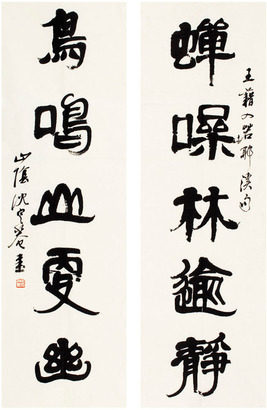 蟬噪林逾靜
王籍入若耶溪句
鳥鳴山更幽
山陰沈定菴書